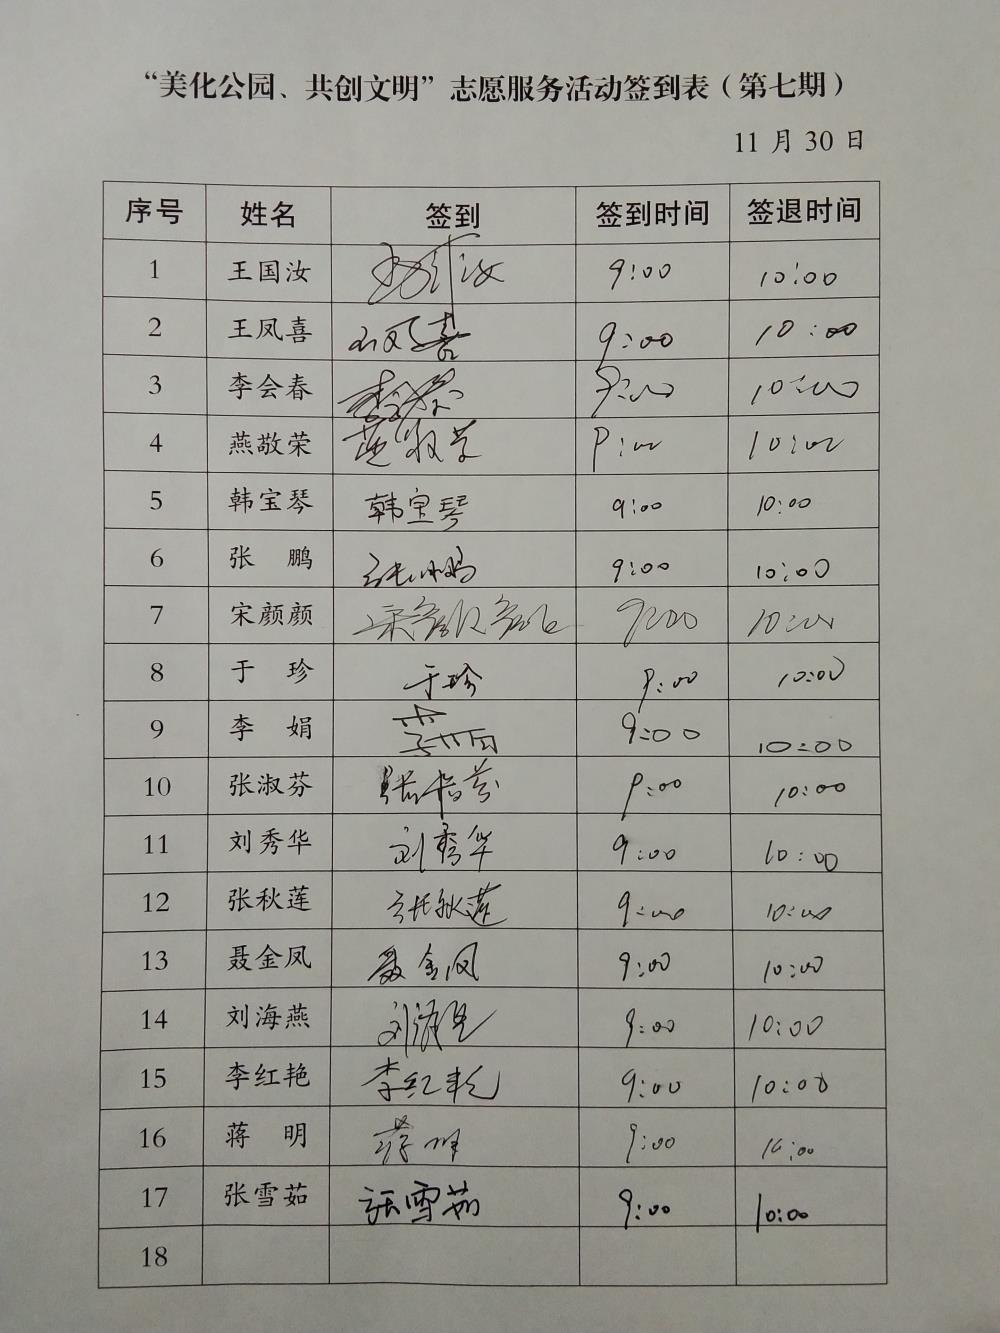 “美化公园、共创文明”志愿服务活动签到表（第七期）
11 月 30 日
序号 姓名 签到 签到时间 签退时间
1 王国汝 王国汝 9:00 10:00
2 王凤喜 王凤喜 9:00 10:00
3 李会春 李会春 9:00 10:00
4 燕敬荣 燕敬荣 9:00 10:00
5 韩宝琴 韩宝琴 9:00 10:00
6 张 鹏 张鹏 9:00 10:00
7 宋颜颜 宋颜颜 9:00 10:00
8 于 珍 于珍 9:00 10:00
9 李 娟 李娟 9:00 10:00
10 张淑芬 张淑芬 9:00 10:00
11 刘秀华 刘秀华 9:00 10:00
12 张秋莲 张秋莲 9:00 10:00
13 聂金凤 聂金凤 9:00 10:00
14 刘海燕 刘海燕 9:00 10:00
15 李红艳 李红艳 9:00 10:00
16 蒋 明 蒋明 9:00 10:00
17 张雪茹 张雪茹 9:00 10:00
18